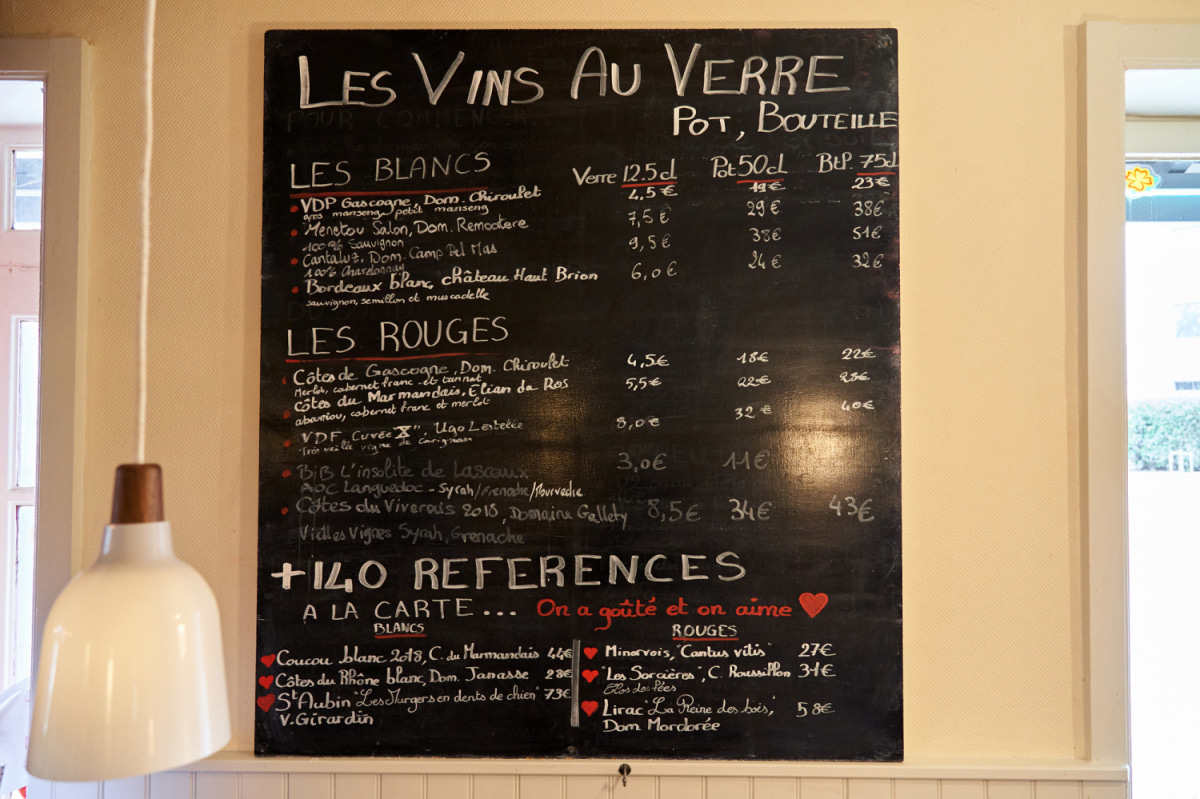 LES VINS AU VERRE
POT, BOUTEILLE
LES BLANCS Verre 12.5cl Pot 50cl Btl. 75cl
VDP Gascogne, Dom. Chiroulet 4,5€ 19€ 23€
gros manseng petit manseng
Menetou Salon, Dom. 7,5€ 29€ 38€
100% Sauvignon
Cantaluz, Dom. Camp Del Mas 9,5€ 38€ 51€
100% Chardonnay
Bordeaux blanc, château Haut Brion 6,0€ 24€ 32€
sauvignon, semillon et muscadelle
LES ROUGES
Côtes de Gascogne, Dom. Chiroulet 4,5€ 18€ 22€
Merlot, cabernet franc et tannat
Côtes du Marmandais, Elian da Ros 5,5€ 22€ 28€
abouriou, cabernet franc et merlot
VDF Cuvée "X", Ugo Lestelle 8,0€ 32€ 40€
Très vieille vigne de Carignan
BiB L'insolite de Lascaux 3,0€ 11€
AOC Languedoc - Syrah/Grenache/Mourvedre
Côtes du Viverais 2018, Domaine Gallety 8,5€ 34€ 43€
Vielles Vignes Syrah, Grenache
+140 REFERENCES
A LA CARTE... On a goûté et on aime
BLANCS ROUGES
Coucou blanc 2018, C. du Marmandais 44€
Côtes du Rhône blanc, Dom. Janasse 28€
St Aubin "Les Murgers en dents de chien" 73€
V. Girardin
Minervois, "Cantus vitis" 27€
"Les Sorcières", C. Roussillon 31€
Clos des Fées
Lirac "La Reine des bois", 58€
Dom Mordorée